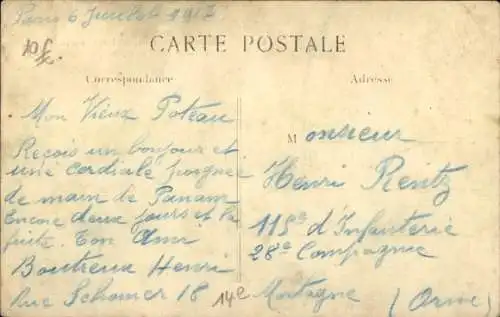 Paris 6 Juillet 1917
10f
CARTE POSTALE
Correspondance
Adresse
Mon Vieux Poteau
Reçois un bonjour et
une cordiale poignee
de main de Panam
Encore deux jours et la
fuite. Ton Ami
Boutreux Henri
Rue Schomer 18 14e
Monsieur
Henri Rentz
115e d'Infanterie
28e Compagnie
Mortagne (Orne)